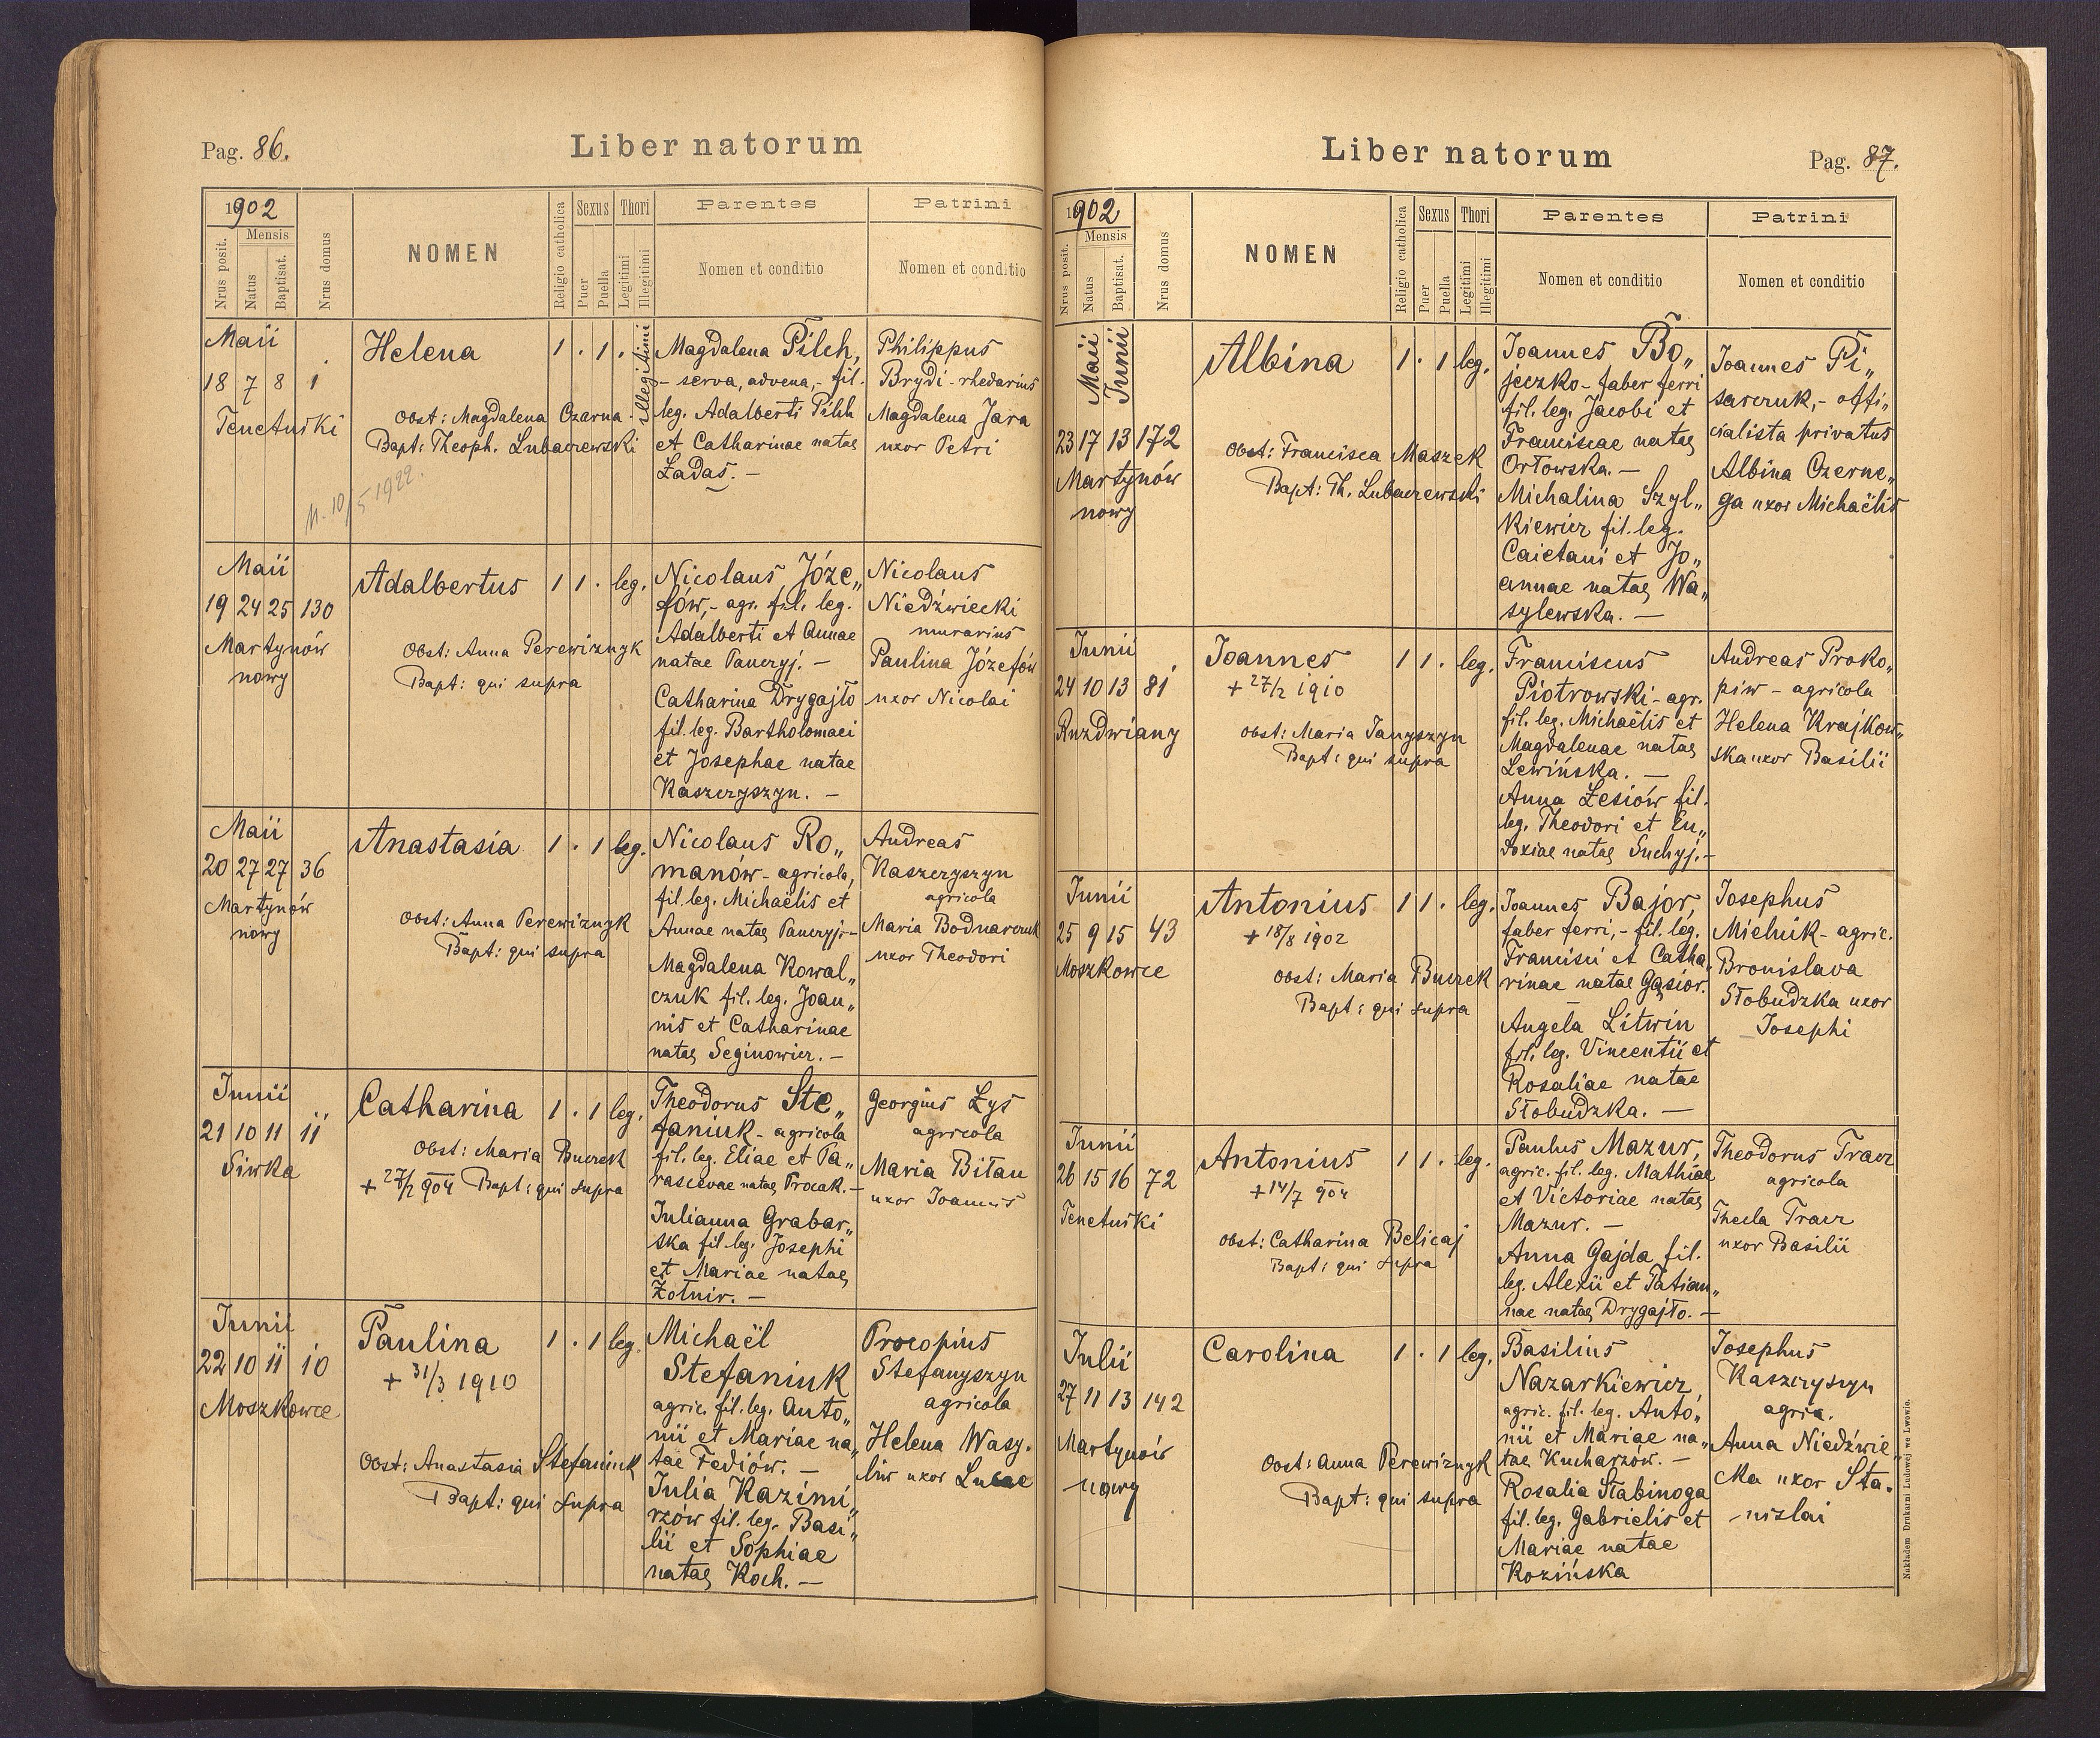 Pag. 86.
Liber natorum
1902
Mensis
Nrus posit.
Natus
Baptisat.
Nrus domus
NOMEN
Religio catholica
Sexus
Puer
Puella
Thori
Legitimi
Illegitimi
Parentes
Nomen et conditio
Patrini
Nomen et conditio
Maii
18 7 8 1
Tenetuśki
Helena
1 . 1 .
illegitimi
Obst: Magdalena Czarna
Bapt: Theoph. Lubaczewski
M. 10/5 1922.
Magdalena Pilch,
- serva, advena, - fil.
leg. Adalberti Pilch
et Catharinae natae
Ładaś. —
Philippus
Brydi - rhedarius
Magdalena Jara
uxor Petri
Maii
19 24 25 130
Martynów
nowy
Adalbertus
1 1 . leg.
Obst: Anna Perewiznyk
Bapt: qui supra
Nicolaus Józe„
fów, - agr. fil. leg.
Adalberti et Annae
natae Panczyj. —
Catharina Drygajło
fil. leg. Bartholomaei
et Josephae natae
Kaszczyszyn. —
Nicolaus
Niedźwiecki
murarius
Paulina Józefów
uxor Nicolai
Maii
20 27 27 36
Martynów
nowy
Anastasia
1 . 1 leg.
Obst: Anna Perewiznyk
Bapt: qui supra
Nicolaus Ro„
manów - agricola,
fil. leg. Michaëlis et
Annae natae Panczyj. —
Magdalena Kowal„
czuk fil. leg. Joan„
nis et Catharinae
natae Seginowicz. —
Andreas
Kaszczyszyn
agricola
Maria Bodnarczuk
uxor Theodori
Junii
21 10 11 11
Siwka
Catharina
1 . 1 leg.
Obst: Maria Burzek
+ 27/2 904 Bapt: qui supra
Theodorus Ste„
faniuk - agricola
fil. leg. Eliae et Pa„
rascevae natae Procak. —
Julianna Grabar„
ska fil. leg. Josephi
et Mariae natae
Żołnir. —
Georgius Łys
agricola
Maria Biłan
uxor Joannis
Junii
22 10 11 10
Moszkowce
Paulina
+ 31/3 1910
1 . 1 leg.
Obst: Anastasia Stefaniuk
Bapt: qui supra
Michaël
Stefaniuk
agric. fil. leg. Anto„
nii et Mariae na„
tae Fediów. —
Julia Kazimi„
rzów fil. leg. Basi„
lii et Sophiae
natae Koch. —
Procopius
Stefanyszyn
agricola
Helena Wasy„
liw uxor Lucae
Liber natorum
Pag. 87.
1902
Mensis
Nrus posit.
Natus
Baptisat.
Nrus domus
NOMEN
Religio catholica
Sexus
Puer
Puella
Thori
Legitimi
Illegitimi
Parentes
Nomen et conditio
Patrini
Nomen et conditio
Maii
Junii
23 17 13 172
Martynów
nowy
Albina
1 . 1 leg.
Obst: Francisca Maszek
Bapt: Th. Lubaczewski
Joannes Bo„
jeczko - faber ferri
fil. leg. Jacobi et
Franciscae natae
Orłowska. —
Michalina Szyl„
kiewicz fil. leg.
Caietani et Jo„
annae natae Wa„
sylewska. —
Joannes Pi„
sarczuk, - offi„
cialista privatus
Albina Czerne„
ga uxor Michaëlis
Junii
24 10 13 81
Ruzdwiany
Joannes
+ 27/2 1910
1 1 . leg.
Obst: Maria Janyszyn
Bapt: qui supra
Franciscus
Piotrowski - agr.
fil. leg. Michaëlis et
Magdalenae natae
Lewińska. —
Anna Łesiów fil.
leg. Theodori et Eu„
doxiae natae Suchyj. —
Andreas Proko„
piw - agricola
Helena Krajkow„
ska uxor Basilii
Junii
25 9 15 43
Moszkowce
Antonius
+ 18/8 1902
1 1 . leg.
Obst: Maria Burzek
Bapt: qui supra
Joannes Bajor,
faber ferri, - fil. leg.
Francisci et Catha„
rinae natae Gąsior.
Angela Litwin
fil. leg. Vincentii et
Rosaliae natae
Słobudzka. —
Josephus
Mielnik - agric.
Bronislava
Słobudzka uxor
Josephi
Junii
26 15 16 72
Tenetuśki
Antonius
+ 14/7 904
1 1 . leg.
Obst: Catharina Belicaj
Bapt: qui supra
Paulus Mazur,
agric. fil. leg. Mathiae
et Victoriae natae
Mazur. —
Anna Gajda fil.
leg. Alexii et Tatian„
nae natae Drygajło. —
Theodorus Tracz
agricola
Thecla Tracz
uxor Basilii
Julii
27 11 13 142
Martynów
nowy
Carolina
1 . 1 leg.
Obst: Anna Perewiznyk
Bapt: qui supra
Basilius
Nazarkiewicz,
agric. fil. leg. Anto„
nii et Mariae na„
tae Kucharzów. —
Rosalia Stabinoga
fil. leg. Gabrielis et
Mariae natae
Kozińska
Josephus
Kaszczyszyn
agric.
Anna Niedźwie„
cka uxor Sta„
nislai
Nakładem Drukarni Ludowej we Lwowie.